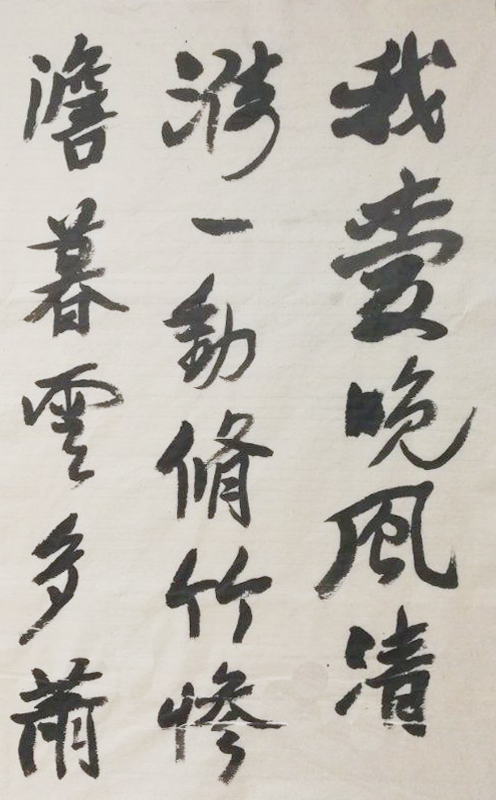 我愛晚風清
漪一動脩竹慘
澹暮雲多蕭